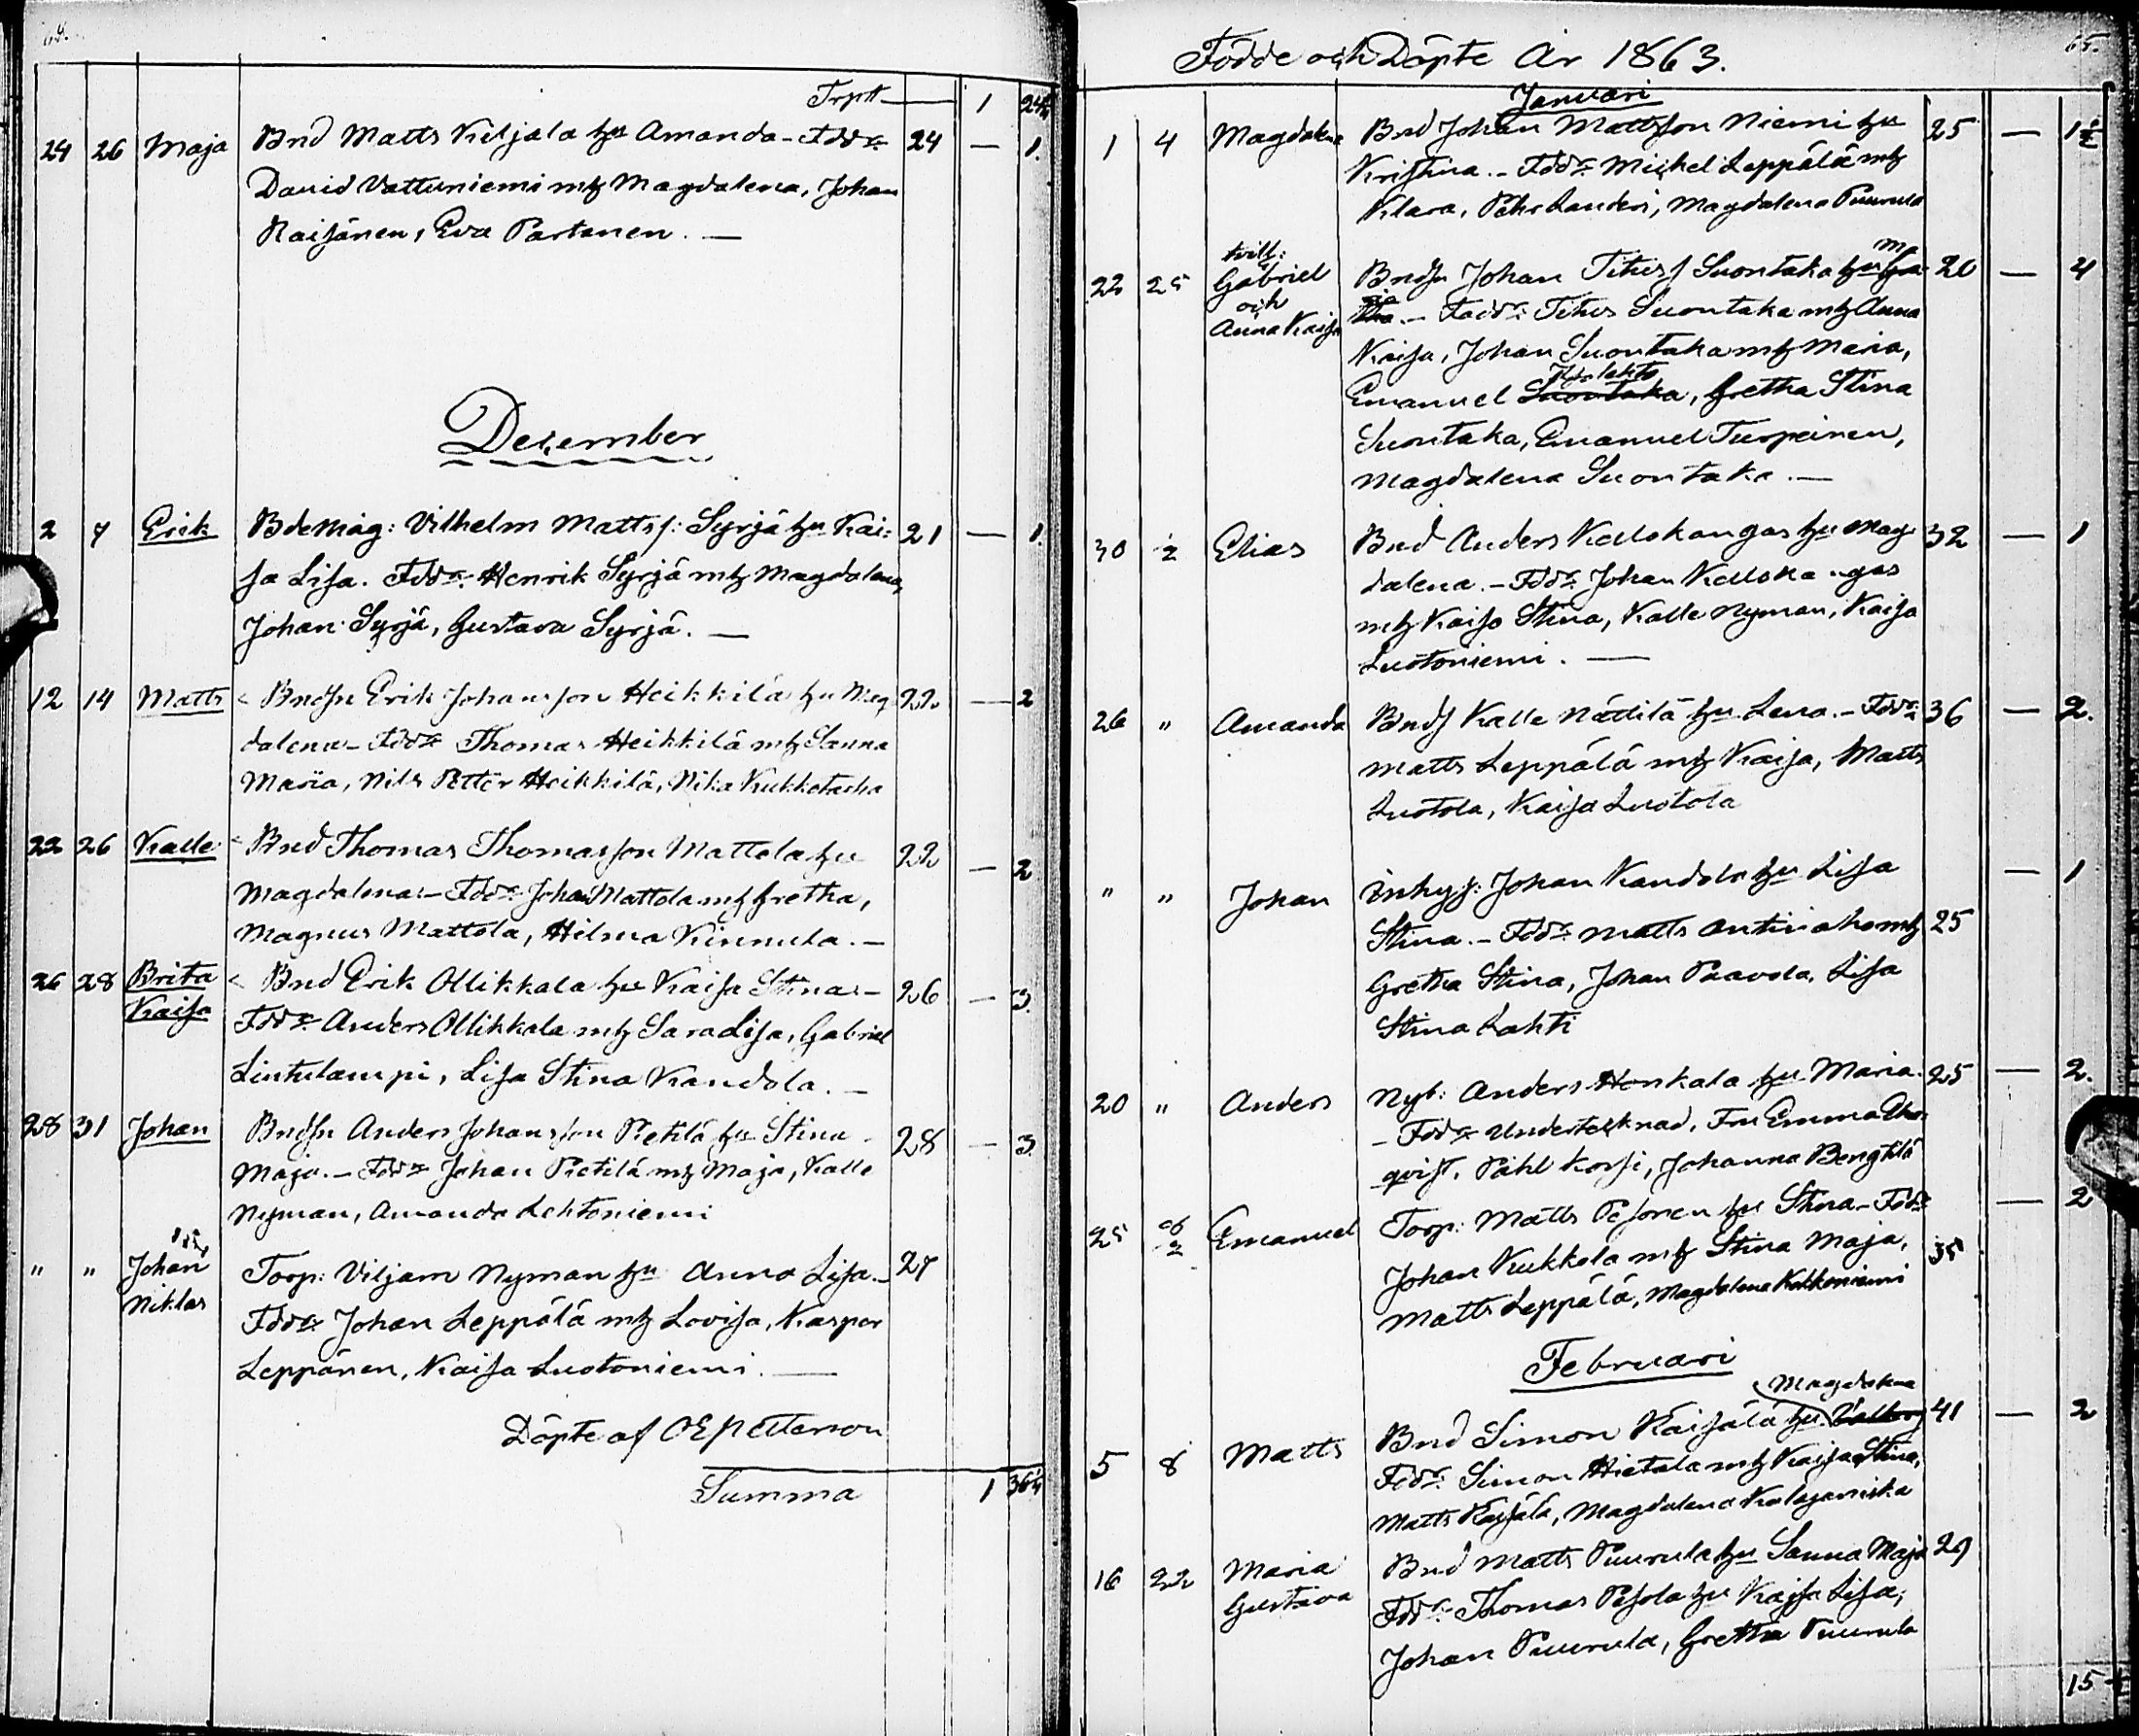 64.
Trpt — 1 24½
24 26 Maja Bnd Matts Kiljala hu Amanda - Fddr: 24 — 1.
David Vattuniemi mh Magdalena, Johan
Raisänen, Eva Partanen. —
December
2 7 Erik Bdemåg: Vilhelm Mattss: Syrjä hu Kai- 21 — 1.
sa Lisa. Fddr: Henrik Syrjä mh Magdalena,
Johan Syrjä, Gustava Syrjä. —
12 14 Matts Bndsn Erik Johansson Heikkilä hu Mag 22 — 2
dalena - Fddr Thomas Heikkilä mh Sanna
Maria, Nils Petter Heikkilä, Kukkotasha
22 26 Kalle Bnd Thomas Thomasson Mattola hu 22 — 2
Magdalena - Fddr: Johan Mattola mh Gretha,
Magnus Mattola, Hilma Kinnula. —
26 28 Brita Kaisa Bnd Erik Ollikkala hu Kaisa Stina - 26 — 3.
Fddr: Anders Ollikkala mh Sara Lisa, Gabriel
Lintulampi, Lisa Stina Kandola. —
28 31 Johan Bndsn Anders Johansson Pietilä hu Stina 28 — 3
Maja. - Fddr Johan Pietilä mh Maja, Kalle
Nyman, Amanda Lehtoniemi
" " Johan Niklas Torp: Viljam Nyman hu Anna Lisa - 27
Fddr: Johan Leppälä mh Lovisa, Kaspar
Leppänen, Kaisa Luotoniemi. —
Döpte af OEPetterson
Summa 1 36½
65.
Födde och Döpte År 1863.
Januari
1 4 Magdalena Bnd Johan Mattsson Niemi hu 25 — 1½
Kristina. - Fddr: Michel Leppälä mh
Klara, Pehr Landers, Magdalena Puurula
22 25 tvill: Gabriel och Anna Kaisa Bndsn Johan Titus s Suontaka hu Ma 20 — 4
ria - Faddr: Titus Suontaka mh Anna
Kaisa, Johan Suontaka mh Maria,
Emanuel Suontaka, Gretha Stina
Suontaka, Emanuel Turpeinen,
Magdalena Suontaka. —
30 ½ Elias Bnd Anders Kallokangas hu Mag 32 — 1
dalena. - Fddr: Johan Kallokangas
mh Kaisa Stina, Kalle Nyman, Kaisa
Luotoniemi. —
26 " Amanda Bnds Kalle Nättilä hu Lena. - Fddr: 36 — 2.
Matts Leppälä mh Kaisa, Matts
Luotola, Kaisa Luotola
" " Johan Inhys: Johan Kandola hu Lisa — 1
Stina. - Fddr: Matts Antinaho mh 25
Gretha Stina, Johan Paavola, Lisa
Stina Lahti
20 " Anders Nyb: Anders Honkala hu Maria. 25 — 2.
- Fddr: Undertecknad, Fru Emma
qvist, Påhl Korsi, Johanna Bengtilä
25 Emanuel Torp: Matts Pesonen hu Stina - Fddr — 2
Johan Kukkola mh Stina Maja, 35
Matts Leppälä, Magdalena Kokkoniemi
Februari
Magdalena
5 8 Matts Bnd Simon Kaisälä hu Valborg 41 — 2
Fddr: Simon Hietala mh Kaisa Stina,
Matts Kaisälä, Magdalena Kalajaniska
16 22 Maria Gustava Bnd Matts Puurula hu Sanna Maja 29
Fddr: Thomas Pesola hu Kajsa Lisa,
Johan Puurula, Gretha Puurula
15